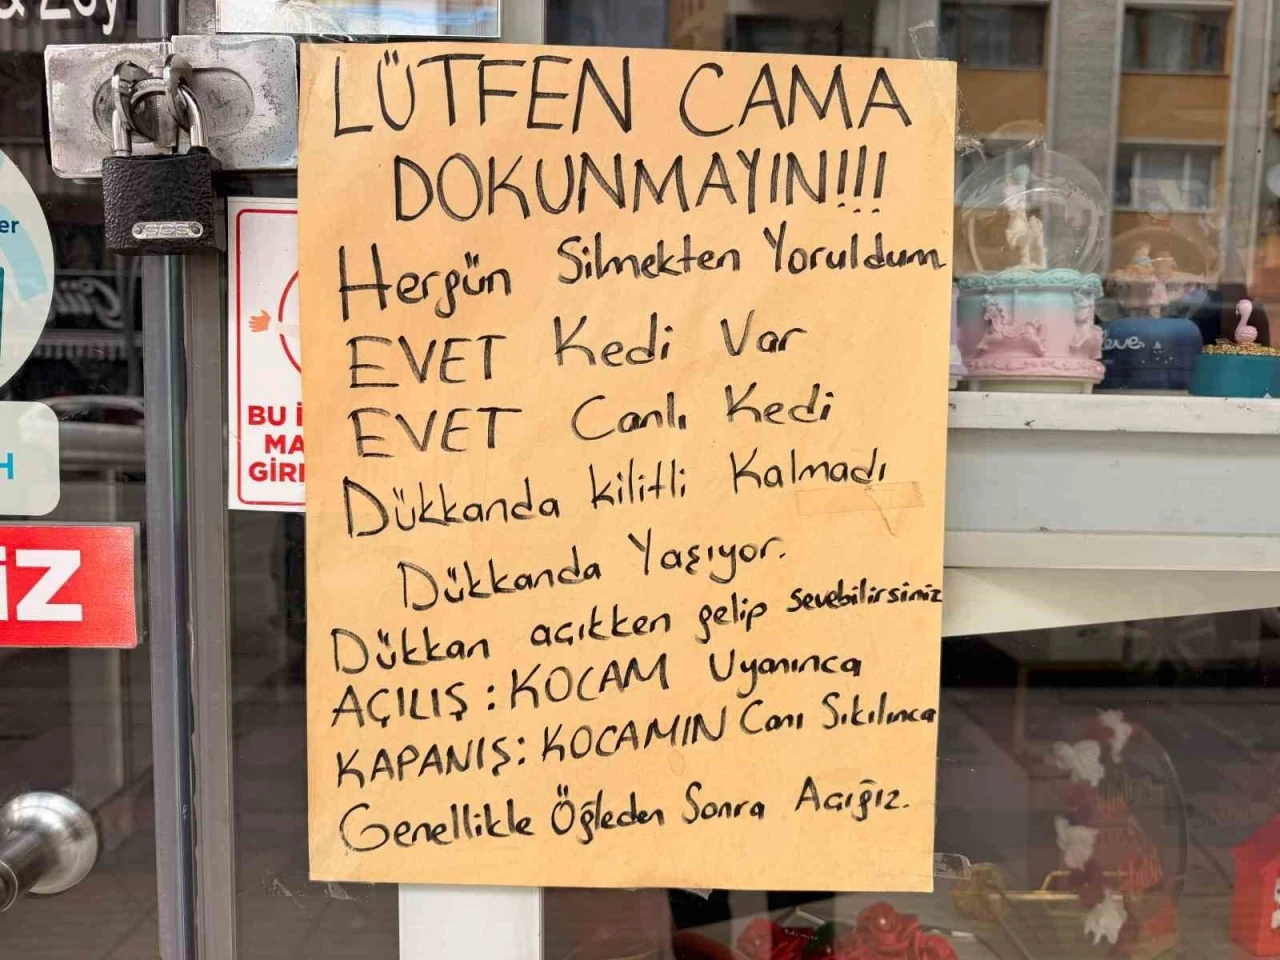 LÜTFEN CAMA
DOKUNMAYIN!!!
Hergün Silmekten Yoruldum
EVET Kedi Var
EVET Canlı Kedi
Dükkanda kilitli Kalmadı
Dükkanda Yaşıyor.
Dükkan açıkken gelip sevebilirsiniz
AÇILIŞ : KOCAM Uyanınca
KAPANIŞ: KOCAMIN Canı Sıkılınca
Genellikle Öğleden Sonra Açığız.
BU